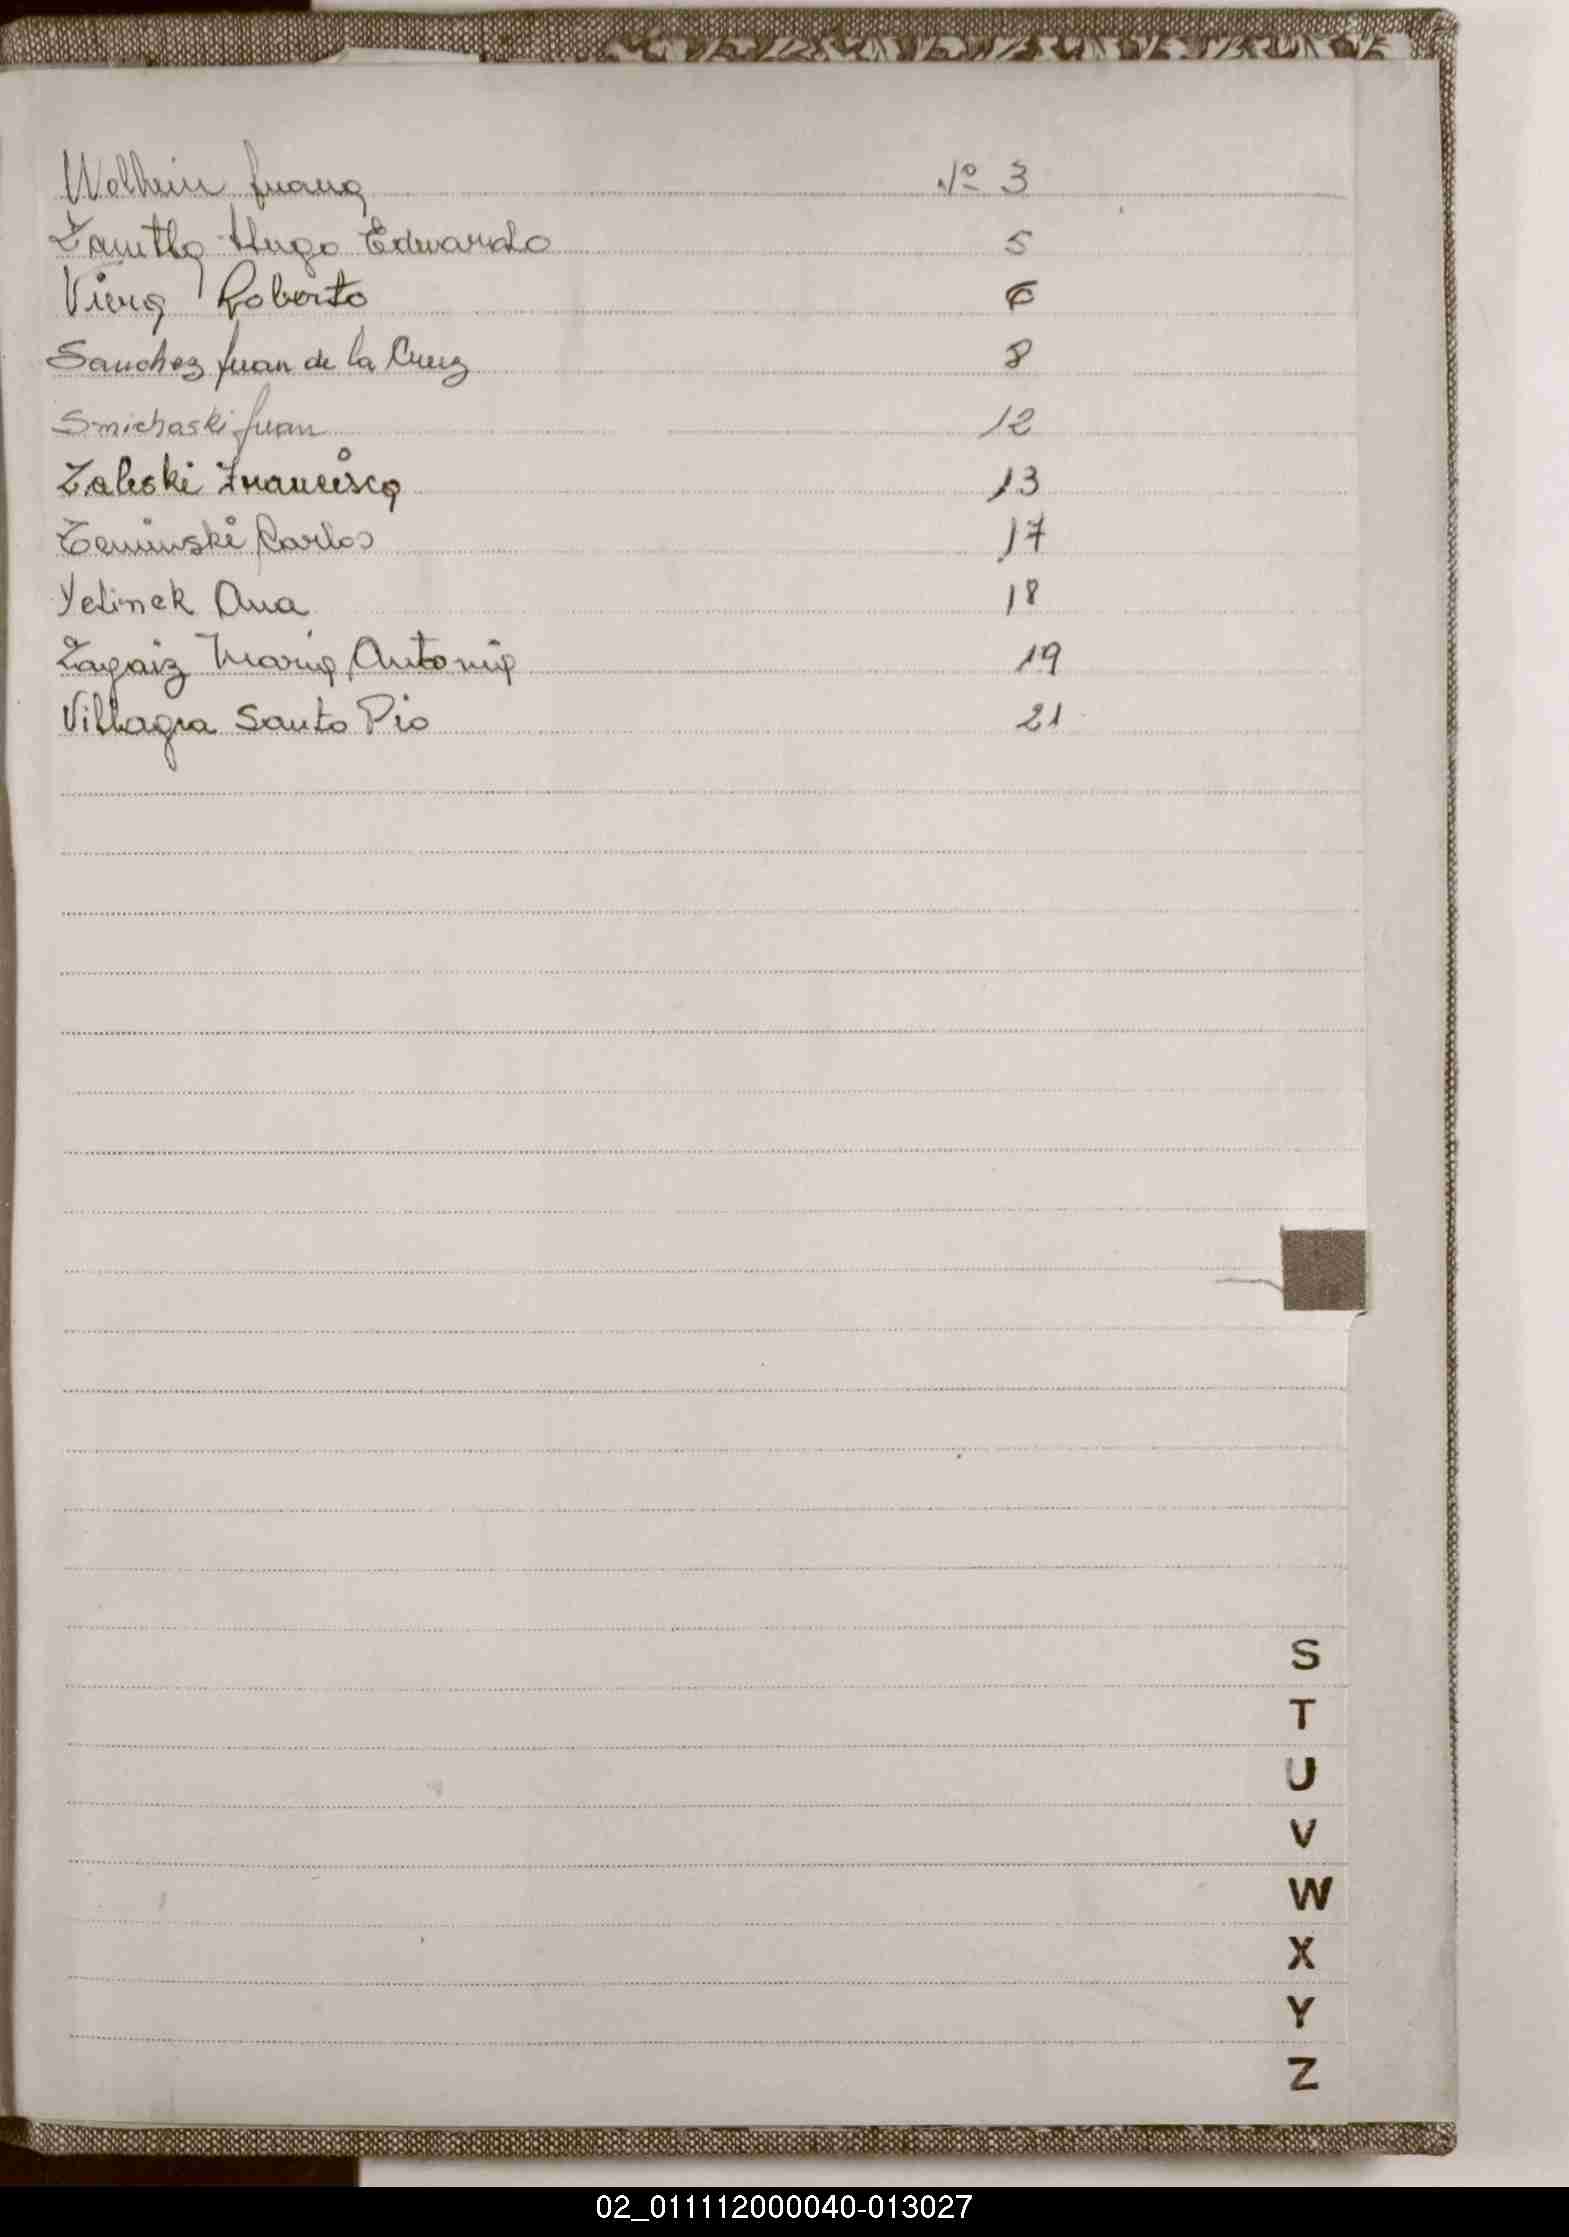 Welhein Juana Nº 3
Hugo Eduardo 5
Viera Roberto 6
Sanchez Juan de la Cruz 8
Smichoski Juan 12
Zaleski Francisco 13
Carlos 17
Yelinek Ana 18
Zagaiz Maria Antonia 19
Villagra Santo Pio 21
S
T
U
V
W
X
Y
Z
02_011112000040-013027